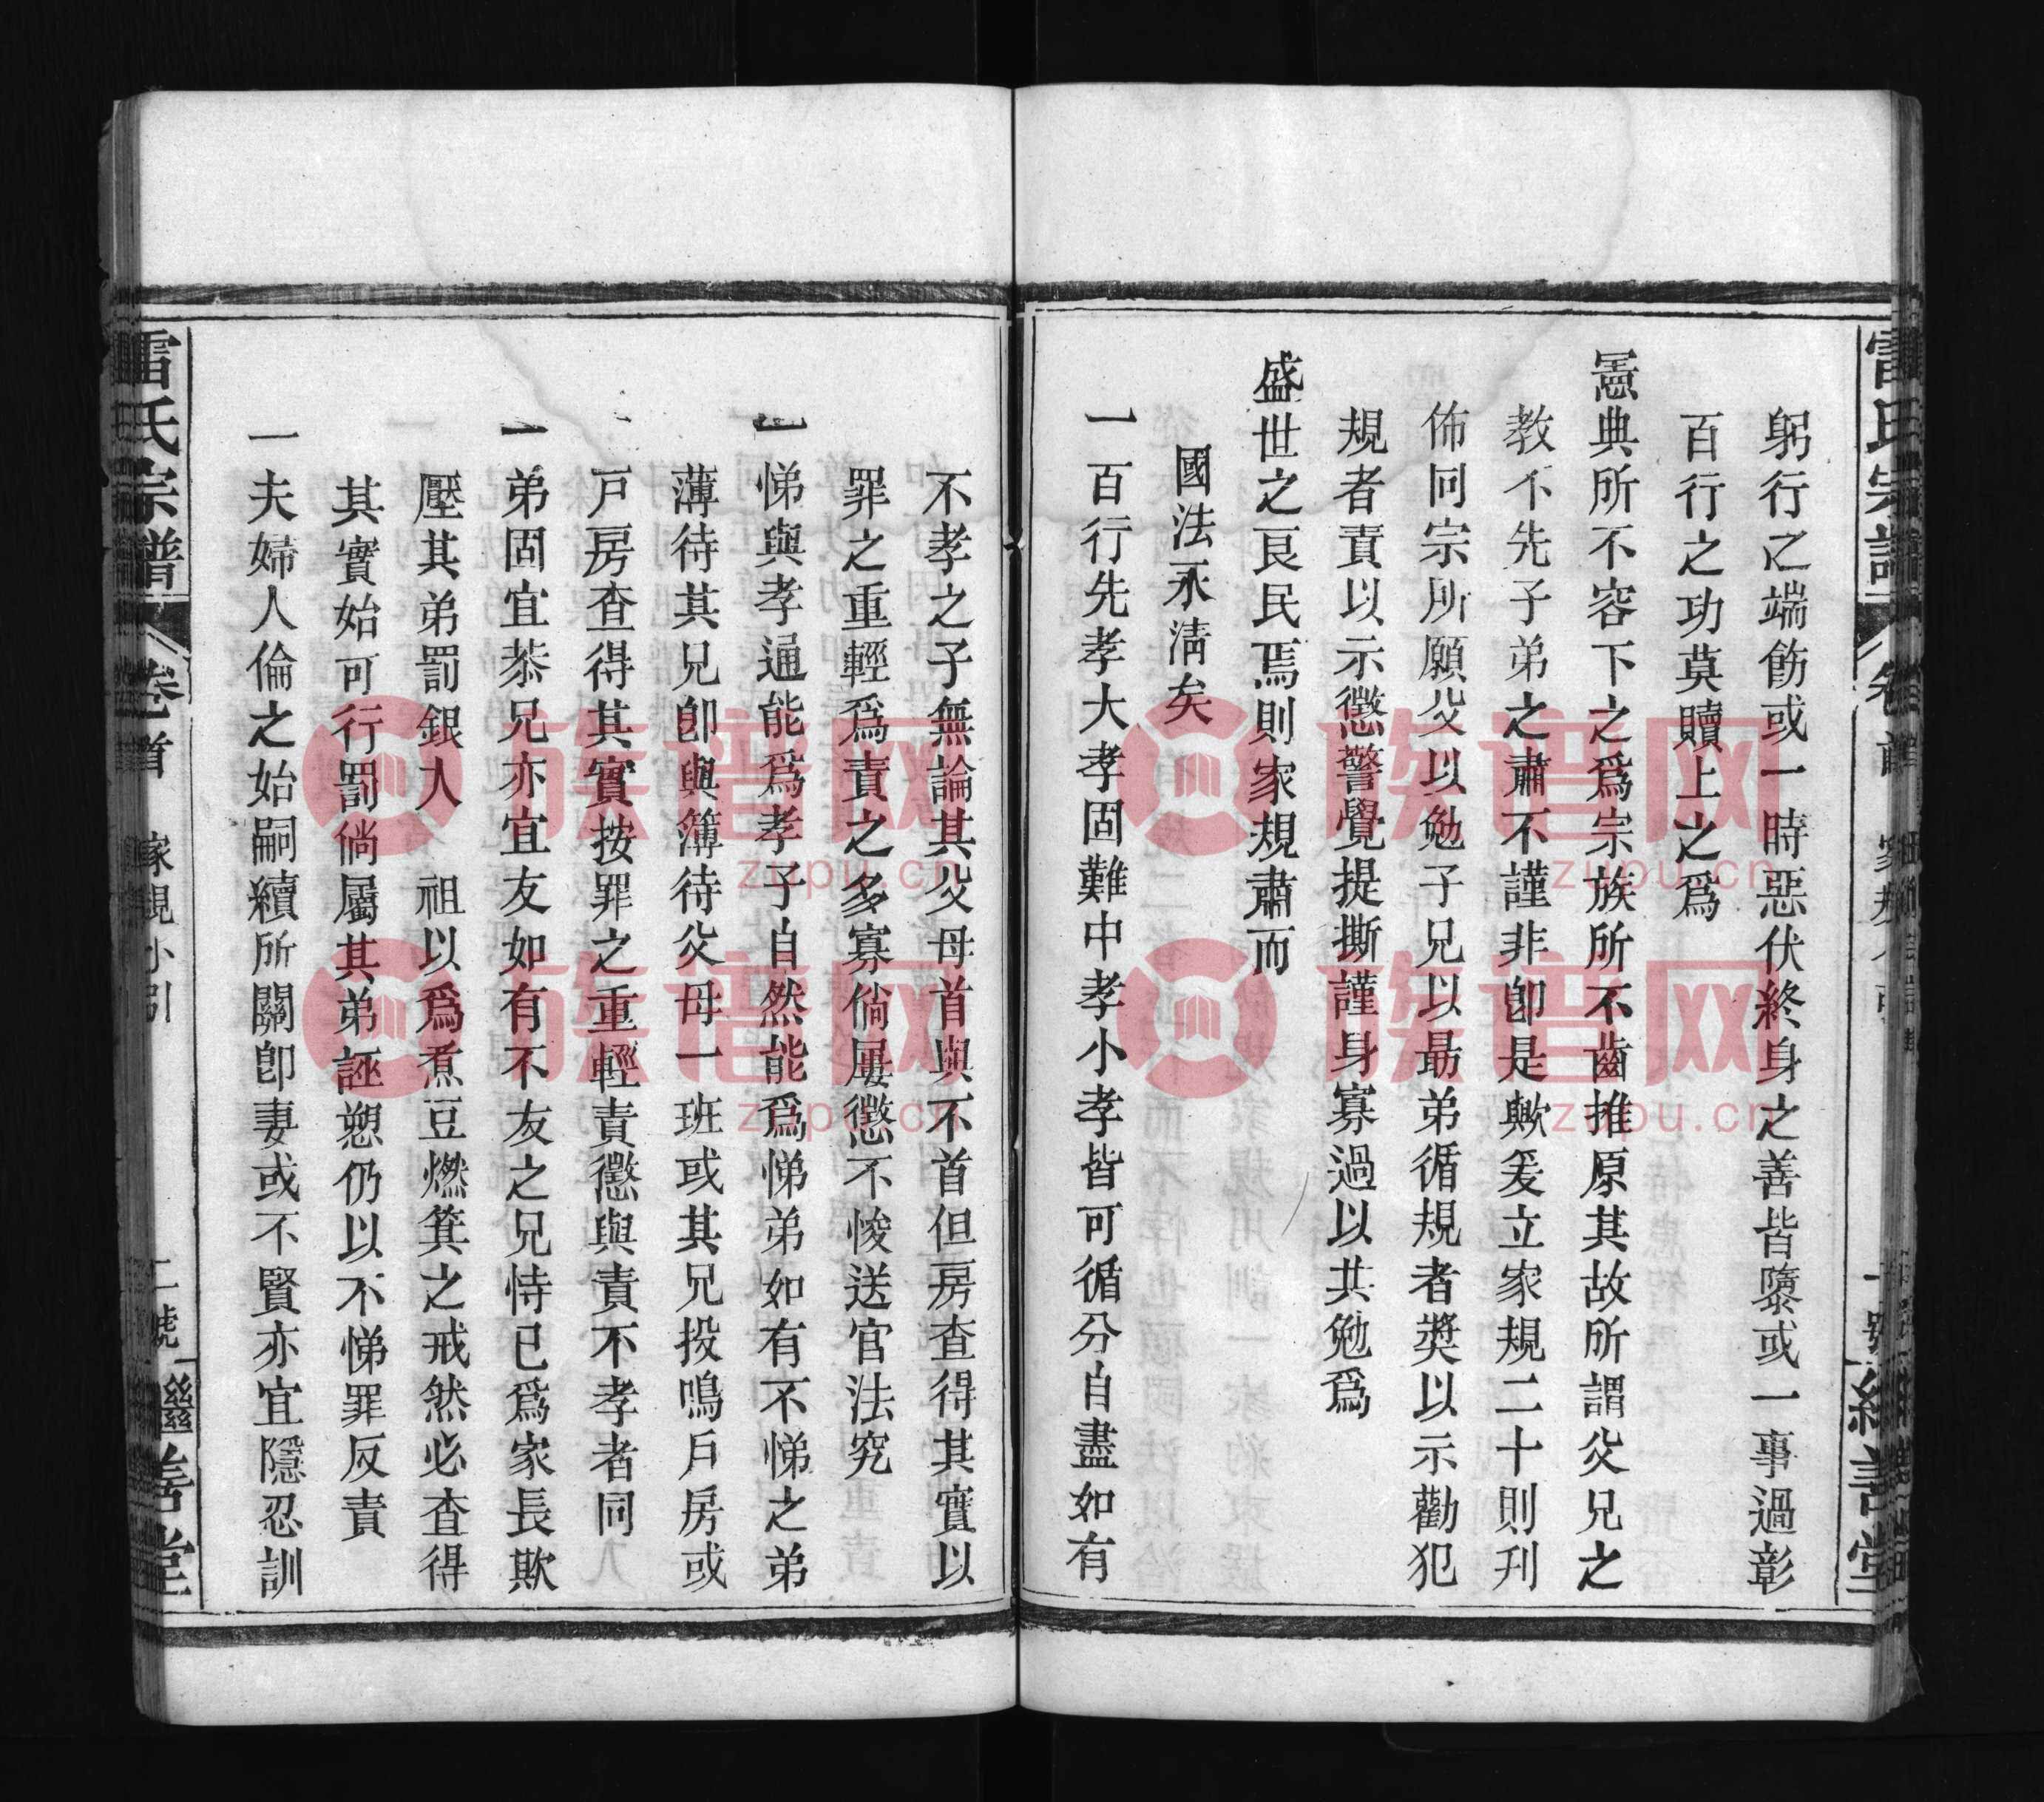 躬行之端飭或一時惡伏終身之善皆隳或一事過彰
百行之功莫贖上之爲
憲典所不容下之爲宗族所不齒推原其故所謂父兄之
教不先子弟之肅不謹非卽是歟爰立家規二十則刋
佈同宗所願父以勉子兄以勗弟循規者奬以示勸犯
規者責以示懲警覺提撕謹身寡過以共勉爲
盛世之良民焉則家規肅而
國法永清矣
一百行先孝大孝固難中孝小孝皆可循分自盡如有
不孝之子無論其父母首與不首但房查得其實以
罪之重輕爲責之多寡倘屢懲不悛送官法究
一悌與孝通能爲孝子自然能爲悌弟如有不悌之弟
薄待其兄卽與簿待父母一班或其兄投鳴戶房或
戶房查得其實按罪之重輕責懲與責不孝者同
一弟固宜恭兄亦宜友如有不友之兄恃已爲家長欺
壓其弟罰銀人 祖以爲煮豆燃箕之戒然必查得
其實始可行罰倘屬其弟誣愬仍以不悌罪反責
一夫婦人倫之始嗣續所關卽妻或不賢亦宜隱忍訓
雷氏宗譜 卷首 家規小引 二號 繼善堂